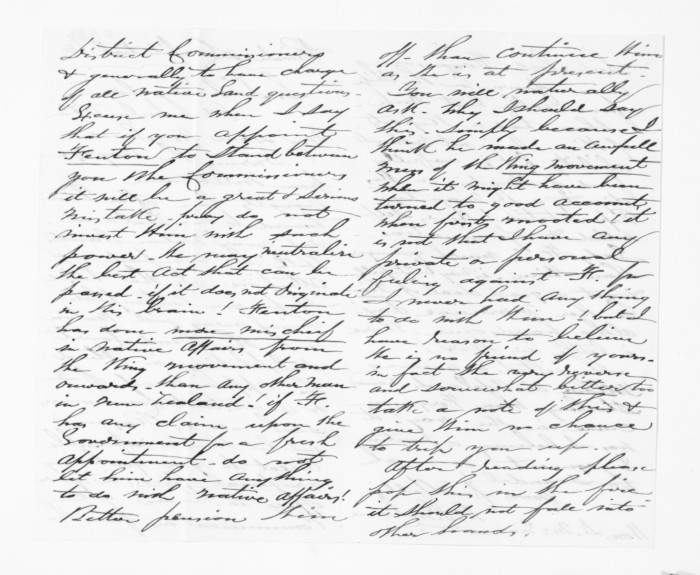 District Commissioners
& generally to have charge
of all native Land questions.
Excuse me when I say
that if you appoint
Fenton to stand between
you & the Commissioners
it will be a great & serious
mistake. pray do not
invest Him with such
power. He may neutralize
the best Act that can be
passed. if it does not originate
in His brain! Fenton
has done more mischief
in native Affairs from
the King movement and
onwards. than any other man
in New Zealand! if F.
has any claim upon the
Government for a fresh
appointment. do not
let him have anything
to do with native affairs!
Better pension Him
off. than continue Him
as He is at present.
You will naturally
ask. Why I should say
this. Simply because I
think he made an awfull
mess of the King movement
when it might have been
turned to good account,
when first mooted! it
is not that I have any
private or personal
feeling against F. for
I never had any thing
to do with Him! but I
have reason to believe
He is no friend of yours.
in fact the very reverse
and somewhat bitter too
take a note of this &
give Him no chance
to trip you up.
After reading please
pop this in the fire
it should not fall into
other hands!